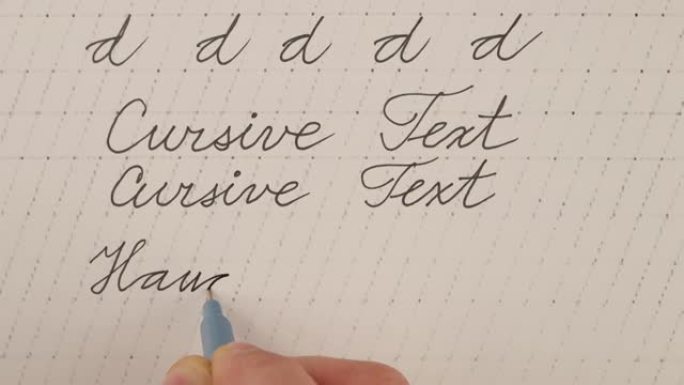 d d d d d
Cursive Text
Cursive Text
Han